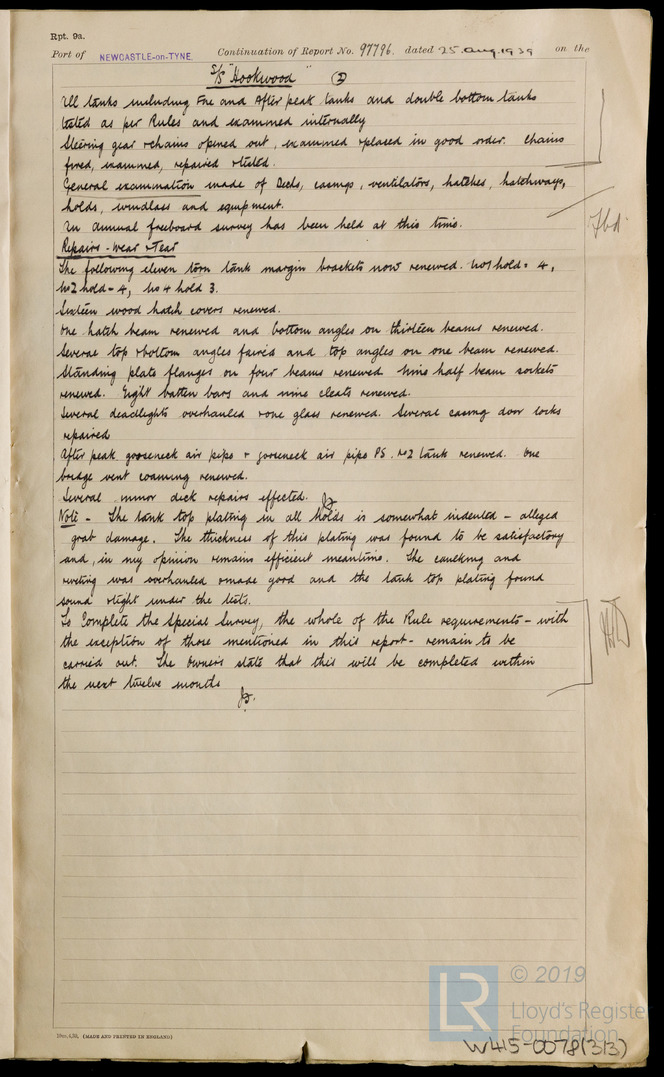 Rpt. 9a.
Port of NEWCASTLE-on-TYNE. Continuation of Report No. 97796. dated 25. Aug. 1939 on the
S/S "Hookwood" (3)
All tanks including Fore and After peak tanks and double bottom tanks
tested as per Rules and examined internally
Steering gear & chains opened out, examined & placed in good order. Chains
fired, examined, repaired & tested.
General examination made of Decks, casings, ventilators, hatches, hatchways,
holds, windlass and equipment.
An Annual freeboard survey has been held at this time.
Fbd.
Repairs - Wear & Tear
The following eleven torn tank margin brackets now renewed. No1 hold = 4,
No2 hold = 4, No 4 hold 3.
Sixteen wood hatch covers renewed.
One hatch beam renewed and bottom angles on thirteen beams renewed.
Several top & bottom angles faired and top angles on one beam renewed.
Standing plate flanges on four beams renewed Nine half beam sockets
renewed. Eight batten bars and nine cleats renewed.
Several deadlights overhauled & one glass renewed. Several casing door locks
repaired
After peak gooseneck air pipe & gooseneck air pipe PS. No2 tank renewed. One
bridge vent coaming renewed.
Several minor deck repairs effected.
Note - The tank top plating in all holds is somewhat indented - alleged
grab damage. The thickness of this plating was found to be satisfactory
and, in my opinion remains efficient meantime. The caulking and
riveting was overhauled & made good and the tank top plating found
sound & tight under the tests.
To Complete the Special Survey, the whole of the Rule requirements - with
the exception of those mentioned in this report - remain to be
carried out. The Owners state that this will be completed within
the next twelve months
(MADE AND PRINTED IN ENGLAND)
LR
© 2019
Lloyd's Register
Foundation
W415-0078(3/3)